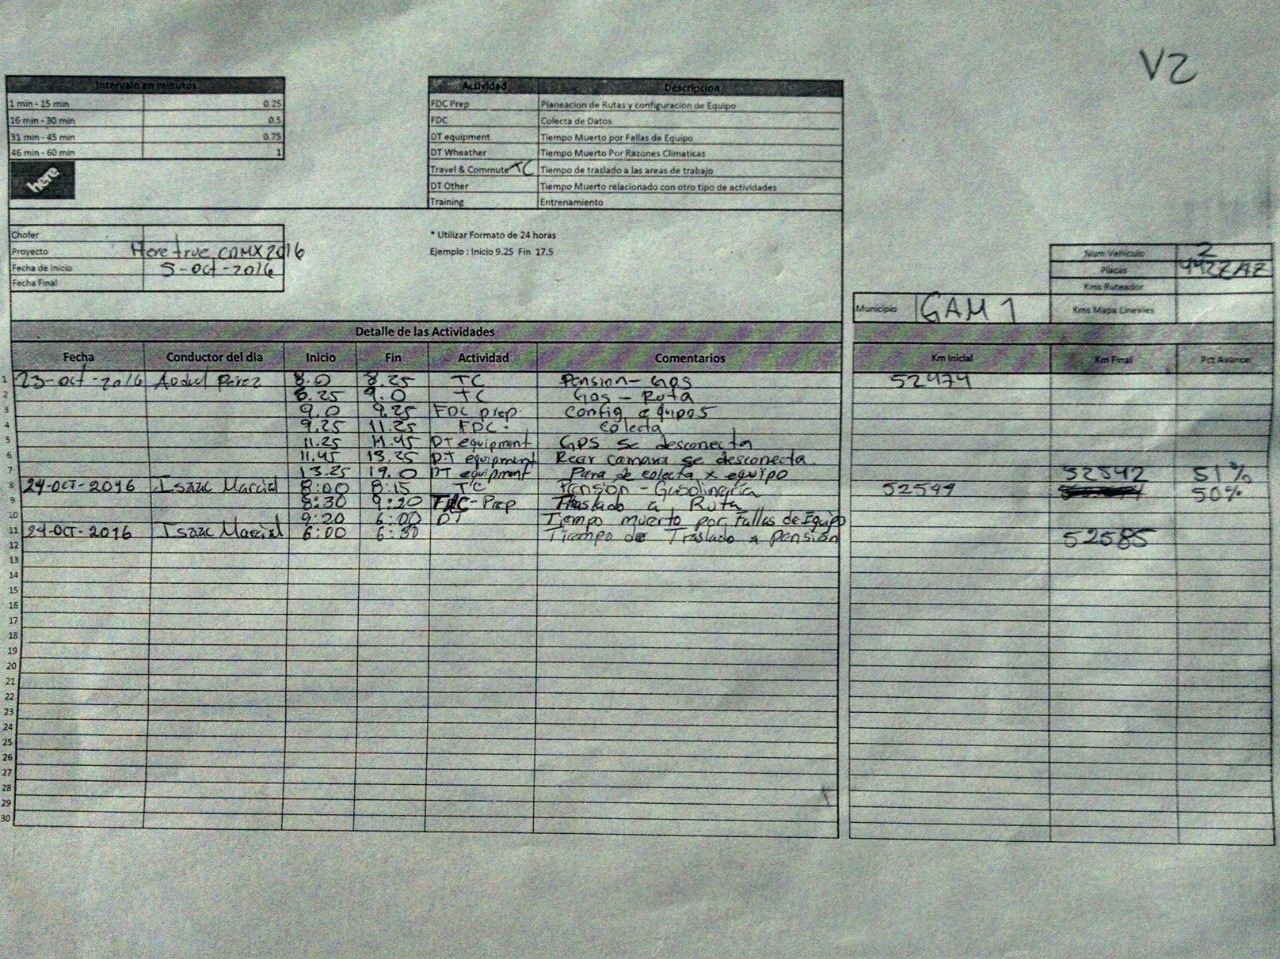 V2
Intervalo en minutos
1 min - 15 min 0.25
16 min - 30 min 0.5
31 min - 45 min 0.75
46 min - 60 min 1
here
Actividad Descripcion
FDC Prep Planeacion de Rutas y configuracion de Equipo
FDC Colecta de Datos
DT equipment Tiempo Muerto por Fallas de Equipo
DT Wheather Tiempo Muerto Por Razones Climaticas
Travel & Commute TC Tiempo de traslado a las areas de trabajo
DT Other Tiempo Muerto relacionado con otro tipo de actividades
Training Entrenamiento
Chofer
Proyecto Here true CDMX 2016
Fecha de Inicio 5-Oct-2016
Fecha Final
* Utilizar Formato de 24 horas
Ejemplo : Inicio 9.25 Fin 17.5
Num Vehiculo 2
Placas
Kms Ruteador
Municipio GAM 1 Kms Mapa Lineales
Detalle de las Actividades
Fecha Conductor del dia Inicio Fin Actividad Comentarios Km Inicial Km Final Pct Avance
1 23-oct-2016 Perez 8.0 8.25 TC Pension - Gas 52474
2 8.25 9.0 TC Gas - Ruta
3 9.0 9.25 FDC prep. Config equipos
4 9.25 11.25 FDC. colecta
5 11.25 11.45 DT equipment GPS se desconecta
6 11.45 13.25 DT equipment Rear camara se desconecta.
7 13.25 19.0 DT equipment Para de colecta x equipo 52542 51%
8 24-OCT-2016 Isaac Marcial 8:00 8:15 TC Pensión - Gasolineria 52544 50%
9 8:30 9:20 FDC-Prep Traslado a Ruta
10 9:20 6:00 DT Tiempo muerto por Fallas de Equipo
11 24-OCT-2016 Isaac Marcial 6:00 6:30 Tiempo de Traslado a pensión 52585
12
13
14
15
16
17
18
19
20
21
22
23
24
25
26
27
28
29
30